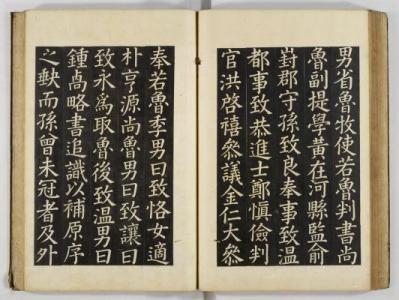 男省魯牧使若魯判書尚
魯副提學黃在河縣監俞
崶郡守孫致良奉事致温
都事致恭進士鄭愼儉判
官洪啓禧叅議金仁大叅
奉若魯季男曰致恪女適
朴亨源尚魯男曰致讓曰
致永爲取魯後致温男曰
鍾卨略書追識以補原序
之缺而孫曾未冠者及外